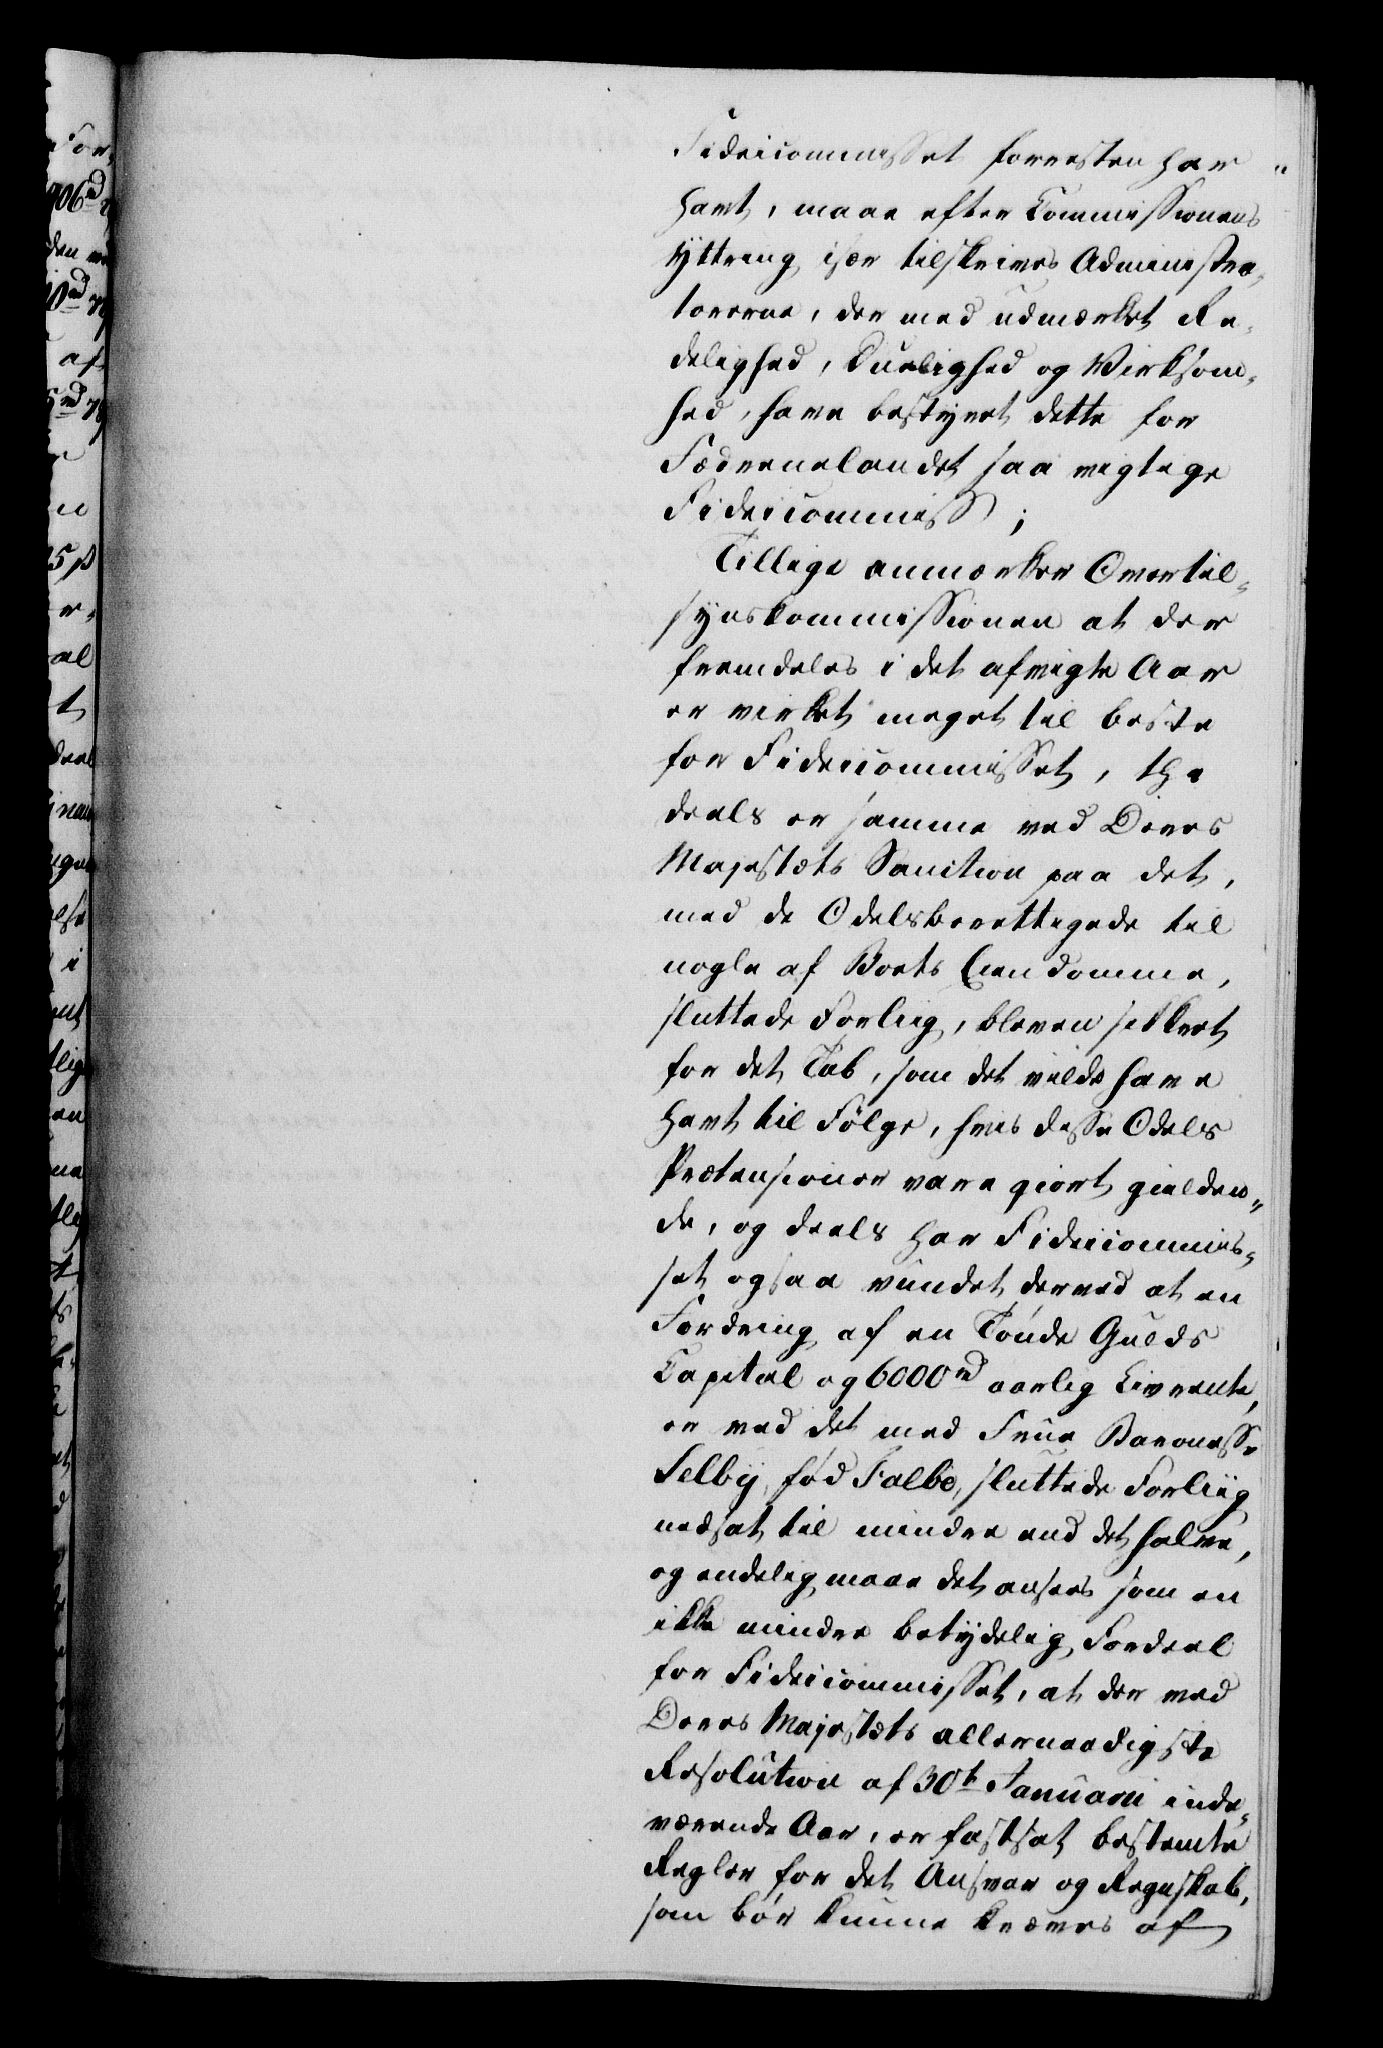 Fideicommisset forresten har
havt, maae efter Commissionens
Yttring især tilskrives Administra-
torerne, der med udmærket Re-
delighed, Duelighed og Virksom-
hed, have bestyret dette for
Fædrenelandet saa vigtige
Fideicommiss;
Tillige anmærker Overtil-
synskommissionen at der
fremdeles i det afvigte Aar
er virket meget til beste
for Fideicommisset, thi
deels er samme ved Deres
Majestæts Sanction paa det,
med de Odelsberettigede til
nogle af Boets Eiendomme,
sluttede Forliig, bleven sikkret
for det Tab, som det vilde have
havt til Følge, hvis disse Odels
Prætensioner vare giort gielden-
de, og deels har Fideicommis-
set ogsaa vundet derved at en
Fordring af en Tønde Gulds
Capital og 6000rd aarlig Livrente,
er ved det med Frue Baronesse
Selby, fød Falbe, sluttede Forliig
nedsat til mindre end det halve,
og endelig maae det ansees som en
ikke mindre betydelig Fordeel
for Fideicommisset, at der ved
Deres Majestæts allernaadigste
Resolution af 30t Januarii inde-
værende Aar, er fastsat bestemte
Regler for det Ansvar og Regnskab,
som bør kunne kræves af